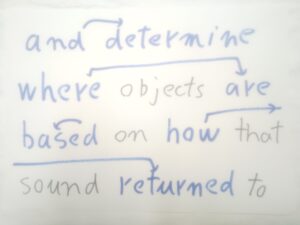 and determine
where objects are
based on how that
sound returned to